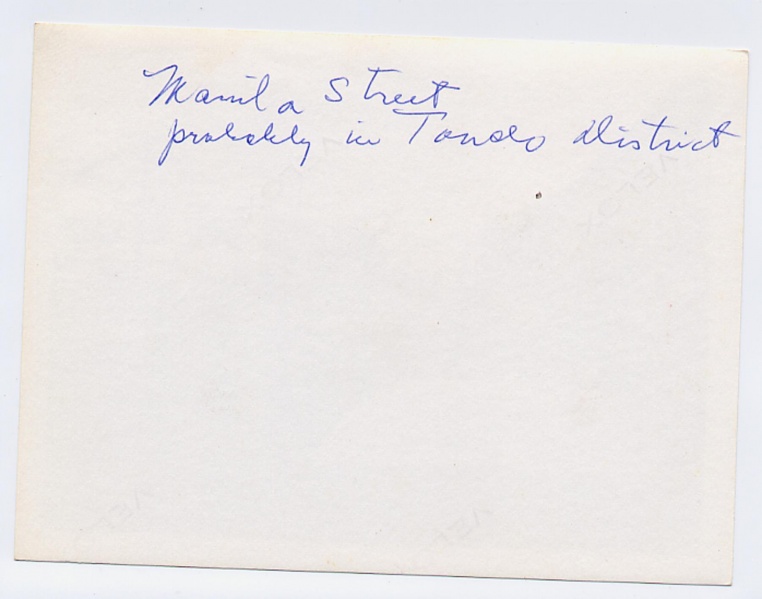 Manila Street
probably in Tondo District
VELOX